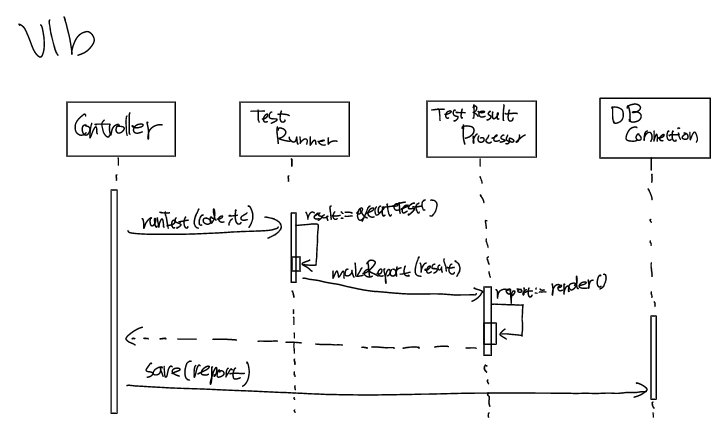 V1b
Controller
Test
Runner
Test Result
Processor
DB
Connection
runTest(code, tc)
result:=executeTest()
makeReport(result)
report:=render()
save(report)